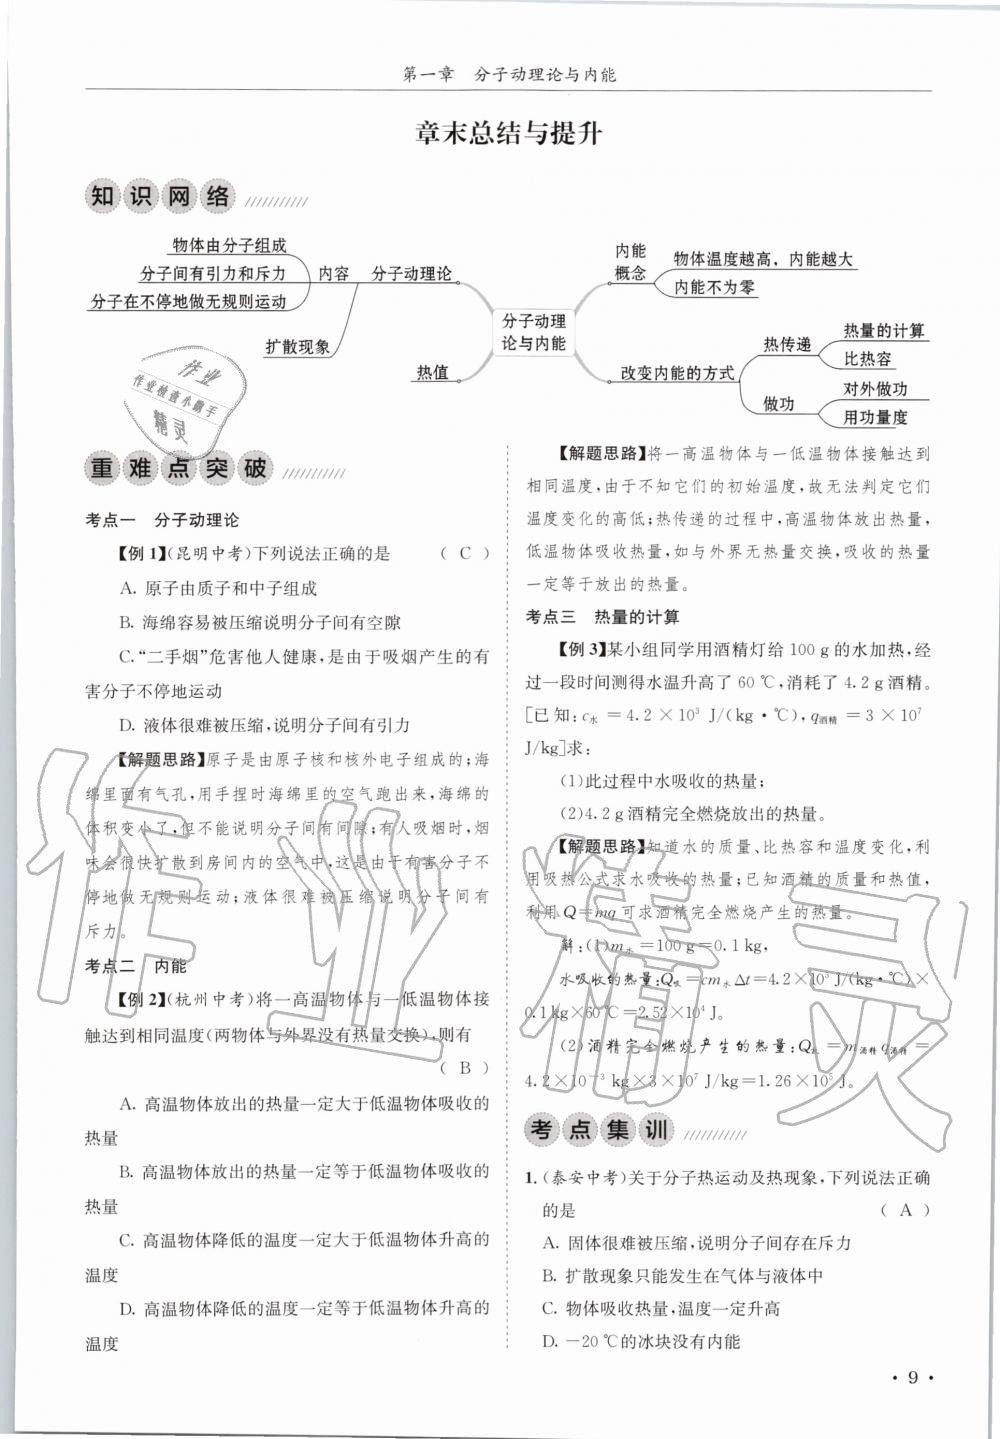 第一章 分子动理论与内能
章末总结与提升
知识网络
物体由分子组成
分子间有引力和斥力
分子在不停地做无规则运动
内容
分子动理论
扩散现象
热值
分子动理
论与内能
内能
概念
物体温度越高，内能越大
内能不为零
改变内能的方式
热传递
热量的计算
比热容
做功
对外做功
用功量度
作业
作业检查小助手
精灵
重难点突破
考点一 分子动理论
【例1】(昆明中考)下列说法正确的是 ( C )
A. 原子由质子和中子组成
B. 海绵容易被压缩说明分子间有空隙
C.“二手烟”危害他人健康,是由于吸烟产生的有
害分子不停地运动
D. 液体很难被压缩,说明分子间有引力
【解题思路】原子是由原子核和核外电子组成的;海
绵里面有气孔,用手捏时海绵里的空气跑出来,海绵的
体积变小了,但不能说明分子间有间隙;有人吸烟时,烟
味会很快扩散到房间内的空气中,这是由于有害分子不
停地做无规则运动;液体很难被压缩说明分子间有
斥力。
考点二 内能
【例2】(杭州中考)将一高温物体与一低温物体接
触达到相同温度(两物体与外界没有热量交换),则有
( B )
A. 高温物体放出的热量一定大于低温物体吸收的
热量
B. 高温物体放出的热量一定等于低温物体吸收的
热量
C. 高温物体降低的温度一定大于低温物体升高的
温度
D. 高温物体降低的温度一定等于低温物体升高的
温度
【解题思路】将一高温物体与一低温物体接触达到
相同温度,由于不知它们的初始温度,故无法判定它们
温度变化的高低;热传递的过程中,高温物体放出热量,
低温物体吸收热量,如与外界无热量交换,吸收的热量
一定等于放出的热量。
考点三 热量的计算
【例3】某小组同学用酒精灯给100 g的水加热,经
过一段时间测得水温升高了60 ℃,消耗了4.2 g酒精。
[已知:c水=4.2×10³ J/(kg·℃),q酒精=3×10⁷
J/kg]求:
(1)此过程中水吸收的热量;
(2)4.2 g酒精完全燃烧放出的热量。
【解题思路】知道水的质量、比热容和温度变化,利
用吸热公式求水吸收的热量;已知酒精的质量和热值,
利用Q=mq可求酒精完全燃烧产生的热量。
解:(1)m水=100 g=0.1 kg,
水吸收的热量:Q吸=cm水Δt=4.2×10³ J/(kg·℃)×
0.1 kg×60 ℃=2.52×10⁴ J。
(2)酒精完全燃烧产生的热量:Q放=m酒精q酒精=
4.2×10⁻³ kg×3×10⁷ J/kg=1.26×10⁵ J。
考点集训
1.(泰安中考)关于分子热运动及热现象,下列说法正确
的是 ( A )
A. 固体很难被压缩,说明分子间存在斥力
B. 扩散现象只能发生在气体与液体中
C. 物体吸收热量,温度一定升高
D. －20 ℃的冰块没有内能
·9·
作业精灵